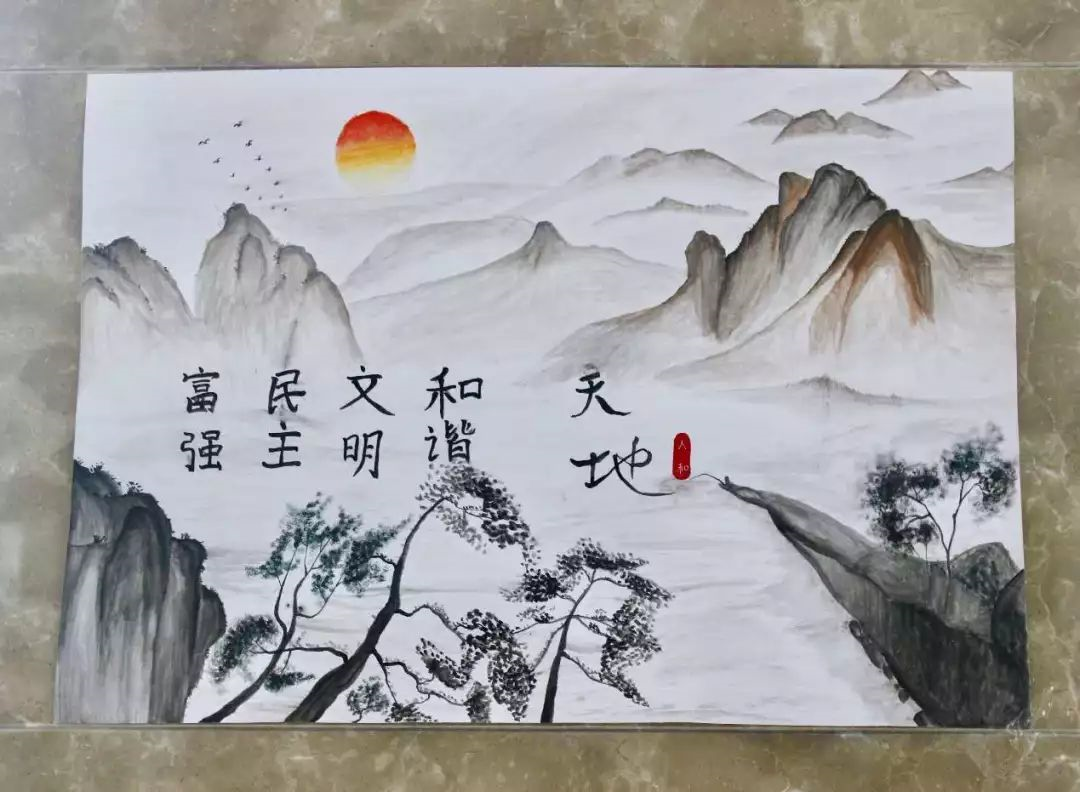 天地
人和
和谐
文明
民主
富强